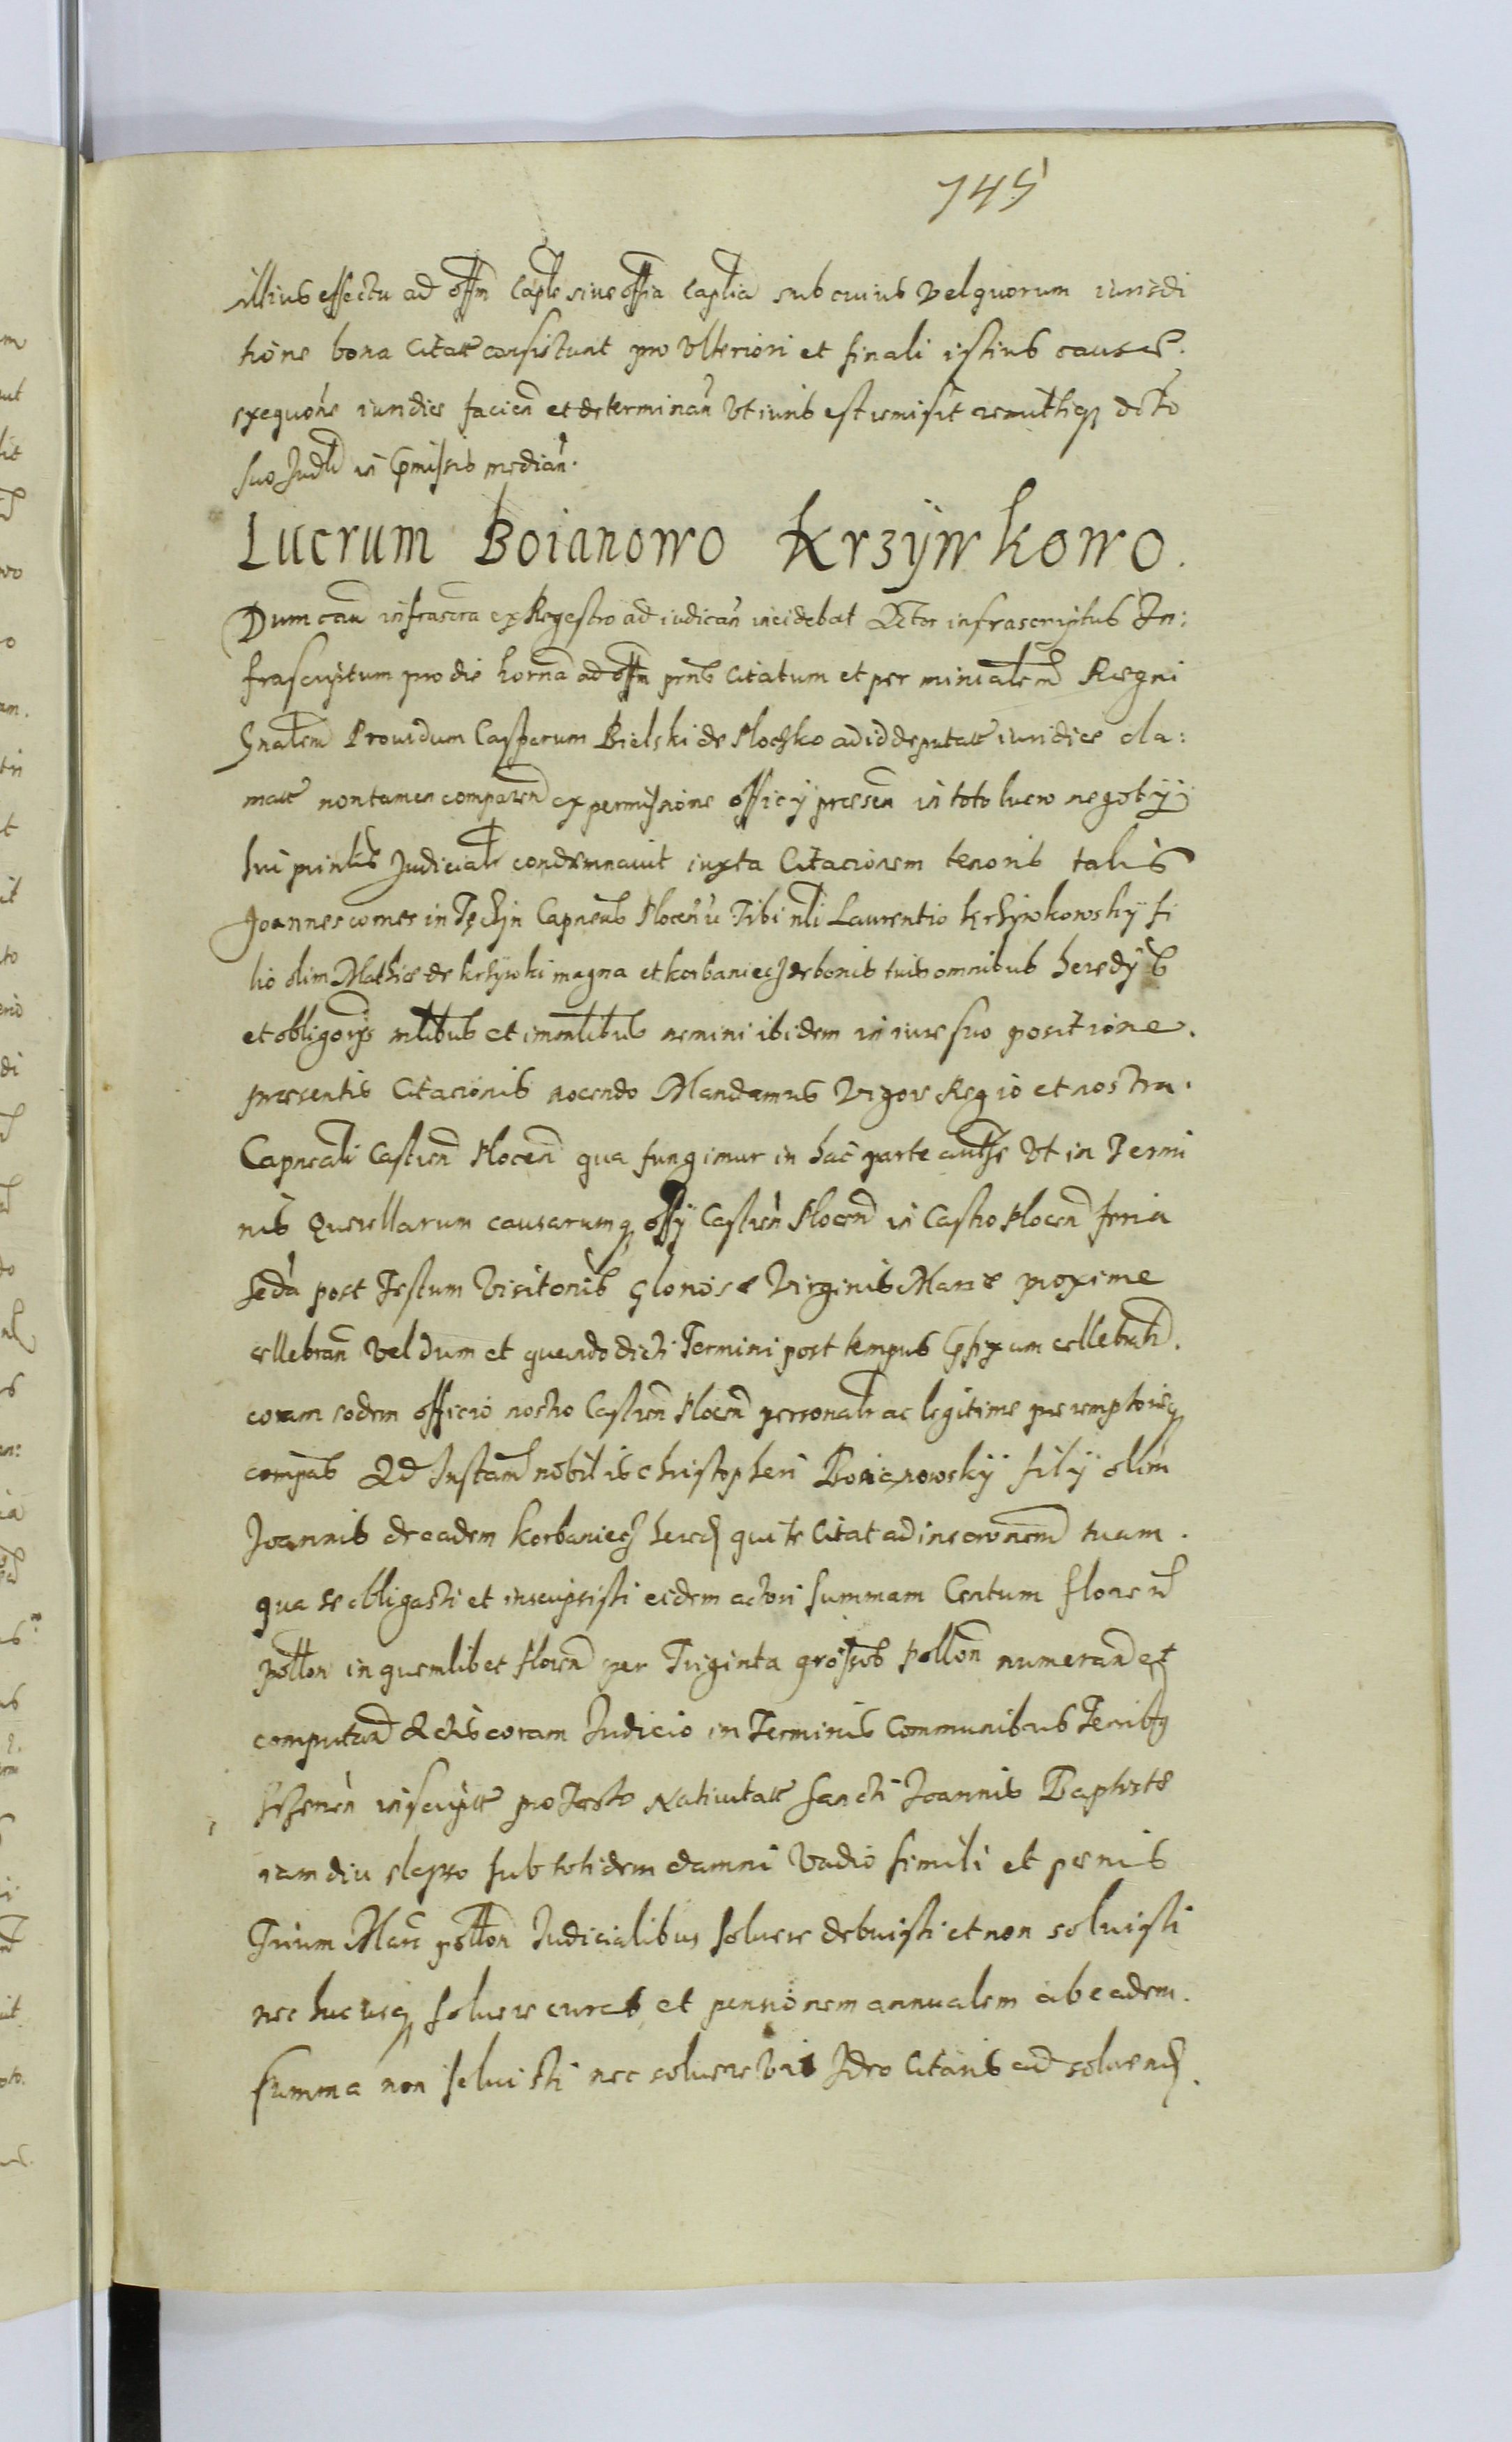 745
illius effectu ad offm Caple siue offia Caplia sub cuius vel quorum iurisdi
tione bona Citatt consistunt pro Vlteriori et finali istius causae.
exequone iuridice facien et determinan Vt iuris est remisit remittitq dcto
suo Judti in pmissis median.
Lucrum Boianowo Krzÿwkowo.
Dum cau infrascra ex Regestro ad iudican incidebat Actor infrascriptus In:
frascriptum pro die horna ad offm prns Citatum et per minialem Regni
Gnalem Prouidum Casparum Bielski de Ploczko ad id deputatt iuridice cla:
matt non tamen comparen ex permissione officÿ praesen in toto lucro negotÿ
sui prinlis Judicialr condemnauit iuxta Citacionem tenoris talis
Joannes comes in Tęchÿn Capneus Plocen Tibi nli Laurentio Krzÿwkowskÿ fi
lio olim Mathiae de Krzÿwki magna et korbaniecz de bonis tuis omnibus heredÿs
et obligorÿs mlibus et immlibus nemini ibidem in iure suo positione.
praesentis Citacionis nocendo Mandamus Vigore Regio et nostra.
Capneali Castren Plocen qua fungimur in hac parte autthe Vt in Termi
nis Querellarum causarumq offÿ Castren Plocen in Castro Plocen feria
seda post Festum Visitonis Gloriosae Virginis Mariae proxime
cellebran vel dum et quando dicti Termini post tempus pfixum cellebrti.
coram eodem officio nostro Castren Plocen personalr ac legitime peremptorieq
compas Ad Instam nobilis Christopheri Boianowskÿ filÿ olim
Joannis de eadem korbaniecz hered qui te Citat ad inscronem tuam.
qua se obligasti et inscripsisti eidem actori summam Centum floren
pollon in quemlibet floren per Triginta grossos Pollon numeran et
computan Actis coram Judicio in Terminis Communibus Terribq
inscriptt pro Festo Natiuitatt Sancti Joannis Baptiste
iam diu elapso sub totidem damni Vadio simili et penis
Trium Marc pollon Judicialibus soluere debuisti et non soluisti
nec hucusq soluere curas et pensionem annualem ab eadem.
summa non soluisti nec soluere vis Ideo Citaris ad soluend.